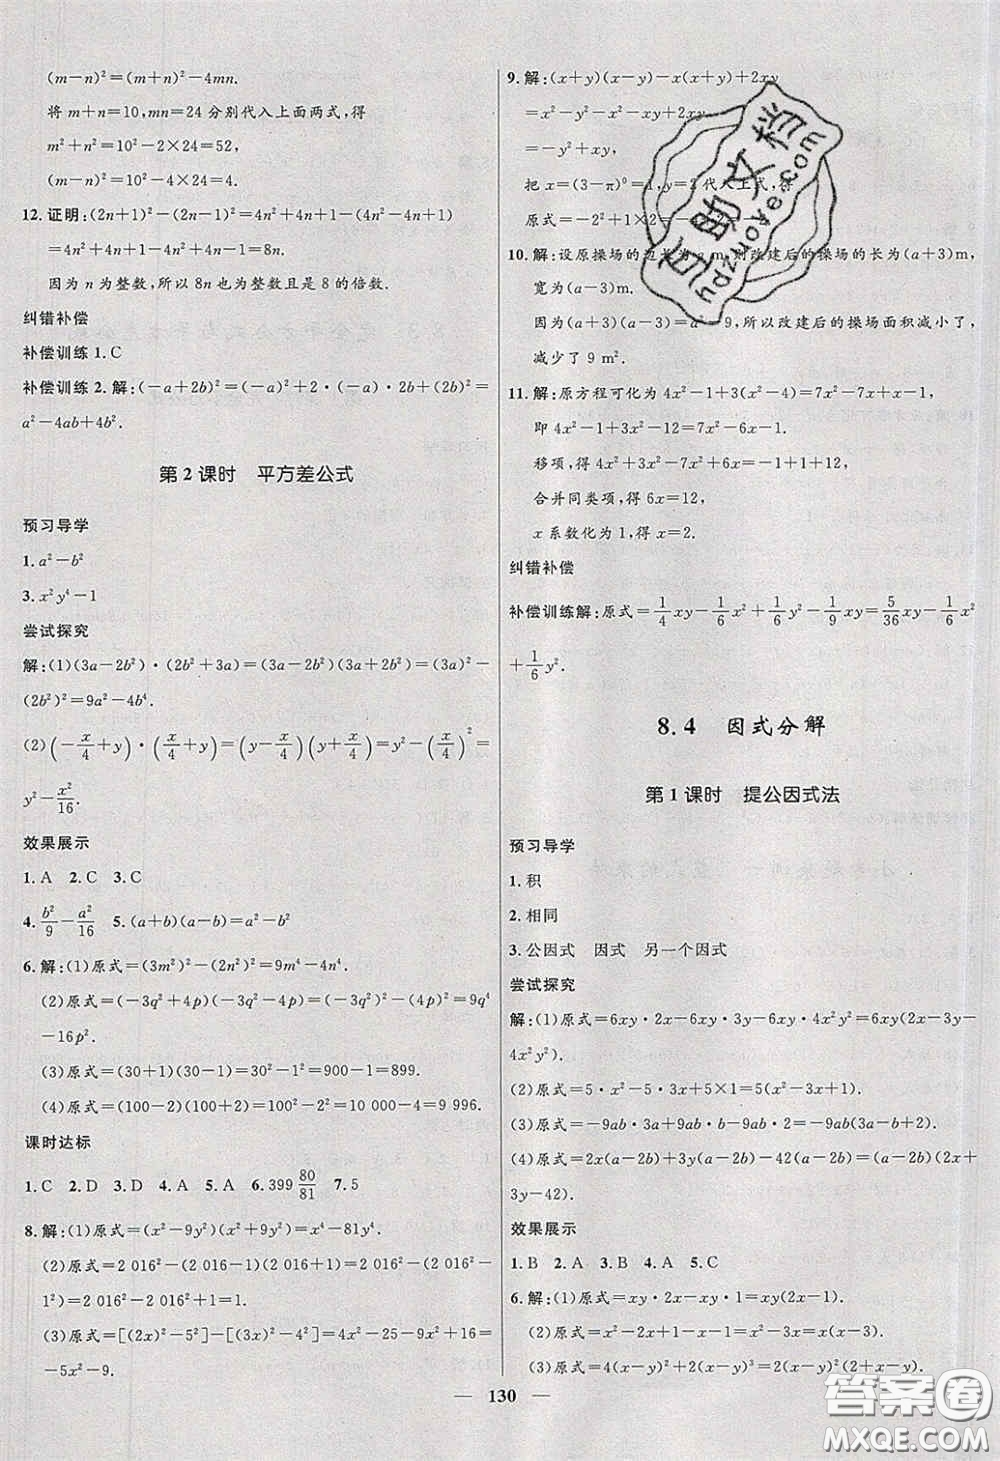 (m－n)²＝(m＋n)²－4mn.
将 m＋n＝10,mn＝24 分别代入上面两式,得
m²＋n²＝10²－2×24＝52,
(m－n)²＝10²－4×24＝4.
12. 证明:(2n＋1)²－(2n－1)²＝4n²＋4n＋1－(4n²－4n＋1)
＝4n²＋4n＋1－4n²＋4n－1＝8n.
因为 n 为整数,所以 8n 也为整数且是 8 的倍数.
纠错补偿
补偿训练 1. C
补偿训练 2. 解:(－a＋2b)²＝(－a)²＋2·(－a)·(2b)＋(2b)²＝
a²－4ab＋4b².
第 2 课时　平方差公式
预习导学
1. a²－b²
3. x²y⁴－1
尝试探究
解:(1)(3a－2b²)·(2b²＋3a)＝(3a－2b²)(3a＋2b²)＝(3a)²－
(2b²)²＝9a²－4b⁴.
(2)(－x/4＋y)·(x/4＋y)＝(y－x/4)(y＋x/4)＝y²－(x/4)²＝
y²－x²/16.
效果展示
1. A　2. C　3. C
4. b²/9－a²/16　5. (a＋b)(a－b)＝a²－b²
6. 解:(1)原式＝(3m²)²－(2n²)²＝9m⁴－4n⁴.
(2)原式＝(－3q²＋4p)(－3q²－4p)＝(－3q²)²－(4p)²＝9q⁴
－16p².
(3)原式＝(30＋1)(30－1)＝30²－1²＝900－1＝899.
(4)原式＝(100－2)(100＋2)＝100²－2²＝10 000－4＝9 996.
课时达标
1. C　2. D　3. D　4. A　5. A　6. 399 80/81　7. 5
8. 解:(1)原式＝(x²－9y²)(x²＋9y²)＝x⁴－81y⁴.
(2)原式＝2 016²－(2 016－1)(2 016＋1)＝2 016²－(2 016²－
1²)＝2 016²－2 016²＋1＝1.
(3)原式＝[(2x)²－5²]－[(3x)²－4²]＝4x²－25－9x²＋16＝
－5x²－9.
9. 解:(x＋y)(x－y)－x(x＋y)＋2xy
＝x²－y²－x²－xy＋2xy
＝－y²＋xy,
把 x＝(3－π)⁰＝1,y＝2 代入上式,得
原式＝－2²＋1×2＝－2.
10. 解:设原操场的边长为 a m,则改建后的操场的长为(a＋3)m,
宽为(a－3)m.
因为(a＋3)(a－3)＝a²－9,所以改建后的操场面积减小了,
减少了 9 m².
11. 解:原方程可化为 4x²－1＋3(x²－4)＝7x²－7x＋x－1,
即 4x²－1＋3x²－12＝7x²－6x－1.
移项,得 4x²＋3x²－7x²＋6x＝－1＋1＋12,
合并同类项,得 6x＝12,
x 系数化为 1,得 x＝2.
纠错补偿
补偿训练解:原式＝1/4xy－1/6x²＋1/6y²－1/9xy＝5/36xy－1/6x²
＋1/6y².
8.4　因式分解
第 1 课时　提公因式法
预习导学
1. 积
2. 相同
3. 公因式　因式　另一个因式
尝试探究
解:(1)原式＝6xy·2x－6xy·3y－6xy·4x²y²＝6xy(2x－3y－
4x²y²).
(2)原式＝5·x²－5·3x＋5×1＝5(x²－3x＋1).
(3)原式＝－9ab·3a－9ab·(－b)－9ab·2＝－9ab(3a－b＋2).
(4)原式＝2x(a－2)＋3y(a－2)－42(a－2)＝(a－2)(2x＋
3y－42).
效果展示
1. B　2. A　3. B　4. A　5. C
6. 解:(1)原式＝xy·2x－xy·1＝xy(2x－1).
(2)原式＝x·x－x·3＝x(x－3).
(3)原式＝4(2－x)²＋(2－x)³＝(2－x)²(4＋2－x)
130
自助文档
ydzuoye.com
答案圈
MXQE.COM